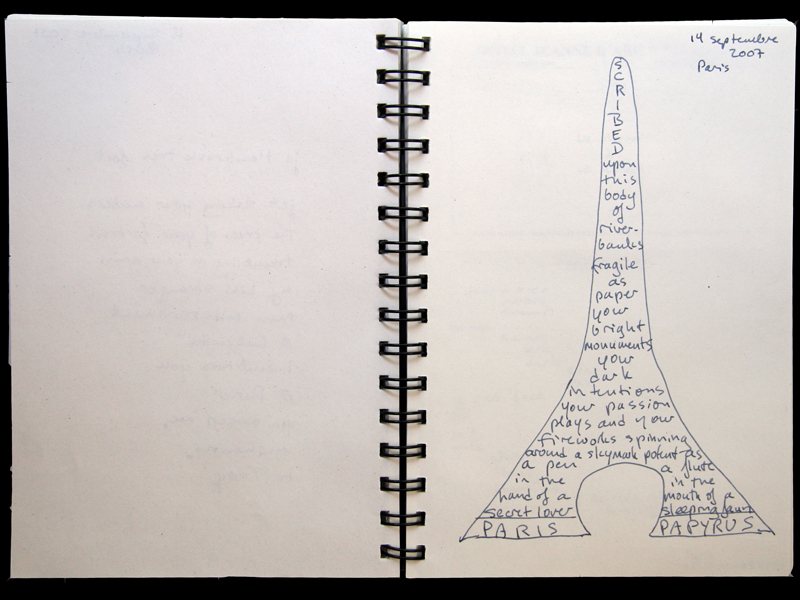 14 septembre
2007
Paris
SCRIBED
upon
this
body
of
river-
banks
fragile
as
paper
your
bright
monuments
your
dark
intentions
your passion
plays and your
fireworks spinning
around a skymark potent as
a pen
in the
hand of a
secret lover
PARIS
a flute
in the
mouth of a
sleeping faun
PAPYRUS